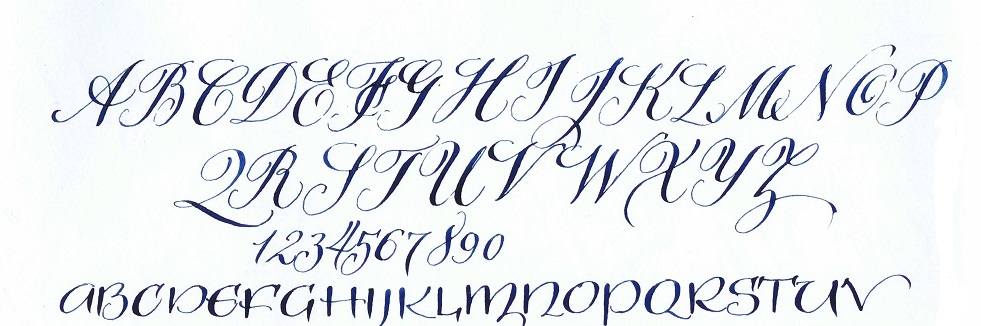 ABCDEFGHIJKLMNOP
QRSTUVWXYZ
1234567890
ABCDEFGHIJKLMNOPQRSTUV